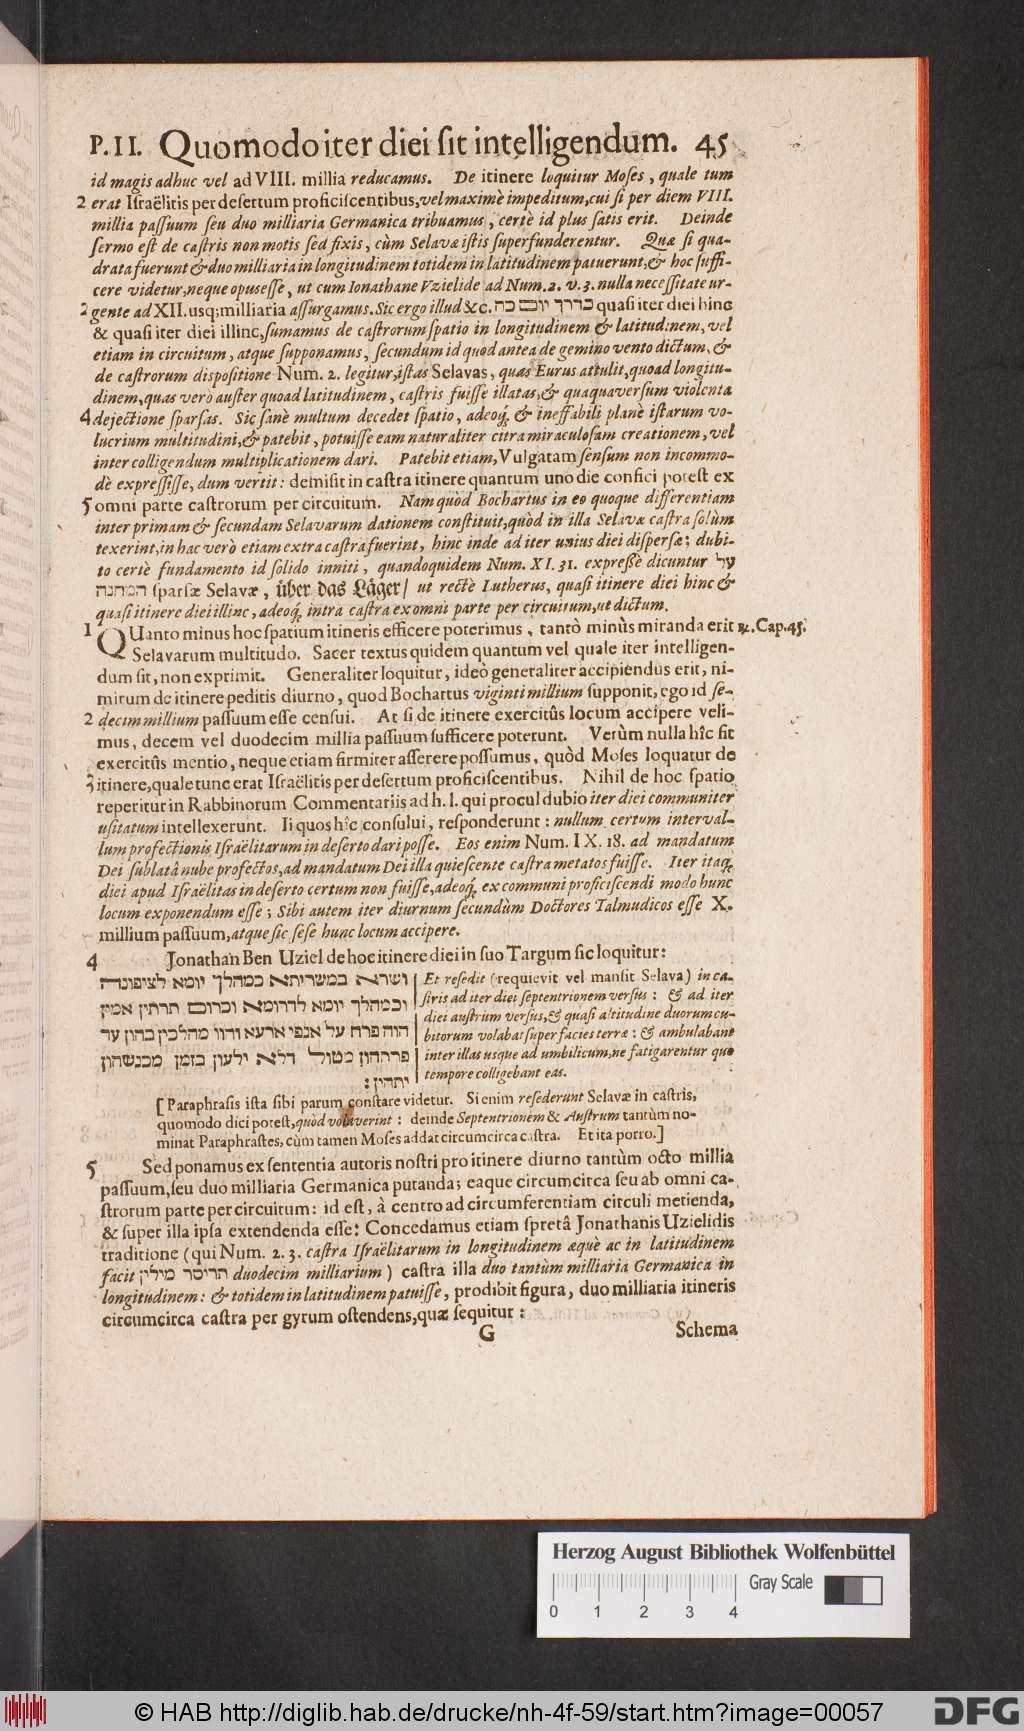 P. II. Quomodo iter diei ſit intelligendum. 45
id magis adhuc vel ad VIII. millia reducamus. De itinere loquitur Moſes, quale tum
2 erat Iſraëlitis per deſertum proficiſcentibus, vel maximè impeditum, cui ſi per diem VIII.
millia paſſuum ſeu duo milliaria Germanica tribuamus, certè id plus ſatis erit. Deinde
ſermo eſt de caſtris non motis ſed fixis, cùm Selavæ iſtis ſuperfunderentur. Quæ ſi qua-
drata fuerunt & duo milliaria in longitudinem totidem in latitudinem patuerunt, & hoc ſuffi-
cere videtur, neque opus eſſe, ut cum Ionathane Vzielide ad Num. 2. v. 3. nulla neceſſitate ur-
3 gente ad XII. usq; milliaria aſſurgamus. Sic ergo illud &c. כדרך יום כה quaſi iter diei hinc
& quaſi iter diei illinc, ſumamus de caſtrorum ſpatio in longitudinem & latitudinem, vel
etiam in circuitum, atque ſupponamus, ſecundum id quod antea de gemino vento dictum, &
de caſtrorum diſpoſitione Num. 2. legitur, iſtas Selavas, quas Eurus attulit, quoad longitu-
dinem, quas verò auſter quoad latitudinem, caſtris fuiſſe illatas, & quaquaverſum violenta
4 dejectione ſparſas. Sic ſanè multum decedet ſpatio, adeoq; & ineffabili planè iſtarum vo-
lucrium multitudini, & patebit, potuiſſe eam naturaliter citra miraculoſam creationem, vel
inter colligendum multiplicationem dari. Patebit etiam, Vulgatam ſenſum non incommo-
dè expreſſiſſe, dum vertit: demiſit in caſtra itinere quantum uno die confici poteſt ex
5 omni parte caſtrorum per circuitum. Nam quòd Bochartus in eo quoque differentiam
inter primam & ſecundam Selavarum dationem conſtituit, quòd in illa Selavæ caſtra ſolùm
texerint, in hac verò etiam extra caſtra fuerint, hinc inde ad iter unius diei diſperſæ; dubi-
to certè fundamento id ſolido inniti, quandoquidem Num. XI. 31. expreſſè dicuntur על
המחנה ſparſæ Selavæ, über das Läger/ ut rectè Lutherus, quaſi itinere diei hinc &
quaſi itinere diei illinc, adeoq; intra caſtra ex omni parte per circuitum, ut dictum.
1 QUanto minus hoc ſpatium itineris efficere poterimus, tantò minùs miranda erit &. Cap. 45.
Selavarum multitudo. Sacer textus quidem quantum vel quale iter intelligen-
dum ſit, non exprimit. Generaliter loquitur, ideò generaliter accipiendus erit, ni-
mirum de itinere peditis diurno, quod Bochartus viginti millium ſupponit, ego id ſe-
2 decim millium paſſuum eſſe cenſui. At ſi de itinere exercitûs locum accipere veli-
mus, decem vel duodecim millia paſſuum ſufficere poterunt. Verùm nulla hîc fit
exercitûs mentio, neque etiam firmiter aſſerere poſſumus, quòd Moſes loquatur de
3 itinere, quale tunc erat Iſraëlitis per deſertum proficiſcentibus. Nihil de hoc ſpatio
reperitur in Rabbinorum Commentariis ad h. l. qui procul dubio iter diei communiter
uſitatum intellexerunt. Ii quos hîc conſului, reſponderunt: nullum certum interval-
lum profectionis Iſraëlitarum in deſerto dari poſſe. Eos enim Num. IX. 18. ad mandatum
Dei ſublatâ nube profectos, ad mandatum Dei illa quieſcente caſtra metatos fuiſſe. Iter itaq;
diei apud Iſraëlitas in deſerto certum non fuiſſe, adeoq; ex communi proficiſcendi modo hunc
locum exponendum eſſe; Sibi autem iter diurnum ſecundùm Doctores Talmudicos eſſe X.
millium paſſuum, atque ſic ſeſe hunc locum accipere.
4 Jonathan Ben Uziel de hoc itinere diei in ſuo Targum ſic loquitur:
ושרא במשריתא כמהלך יומא לציפונה
וכמהלך יומא לדרומא וכרום תרתין אמין
הוה פרח על אנפי ארעא והוו מהלכין בהון עד
פרתהון מטול דלא ילעון בזמן מכנשהון
יתהין:
Et reſedit (requievit vel manſit Selava) in ca-
ſtris ad iter diei ſeptentrionem verſus: & ad iter
diei auſtrum verſus, & quaſi altitudine duorum cu-
bitorum volabat ſuper facies terræ: & ambulabant
inter illas usque ad umbilicum, ne fatigarentur quo
tempore colligebant eas.
[Paraphraſis iſta ſibi parum conſtare videtur. Si enim reſederunt Selavæ in caſtris,
quomodo dici poteſt, quòd volaverint: deinde Septentrionem & Auſtrum tantùm no-
minat Paraphraſtes, cùm tamen Moſes addat circumcirca caſtra. Et ita porro.]
5 Sed ponamus ex ſententia autoris noſtri pro itinere diurno tantùm octo millia
paſſuum, ſeu duo milliaria Germanica putanda; eaque circumcirca ſeu ab omni ca-
ſtrorum parte per circuitum: id eſt, à centro ad circumferentiam circuli metienda,
& ſuper illa ipſa extendenda eſſe: Concedamus etiam ſpretâ Jonathanis Uzielidis
traditione (qui Num. 2. 3. caſtra Iſraëlitarum in longitudinem æquè ac in latitudinem
facit תריסר מילין duodecim milliarium) caſtra illa duo tantùm milliaria Germanica in
longitudinem: & totidem in latitudinem patuiſſe, prodibit figura, duo milliaria itineris
circumcirca caſtra per gyrum oſtendens, quæ ſequitur:
G Schema
Herzog August Bibliothek Wolfenbüttel
Gray Scale
0 1 2 3 4
© HAB http://diglib.hab.de/drucke/nh-4f-59/start.htm?image=00057 DFG